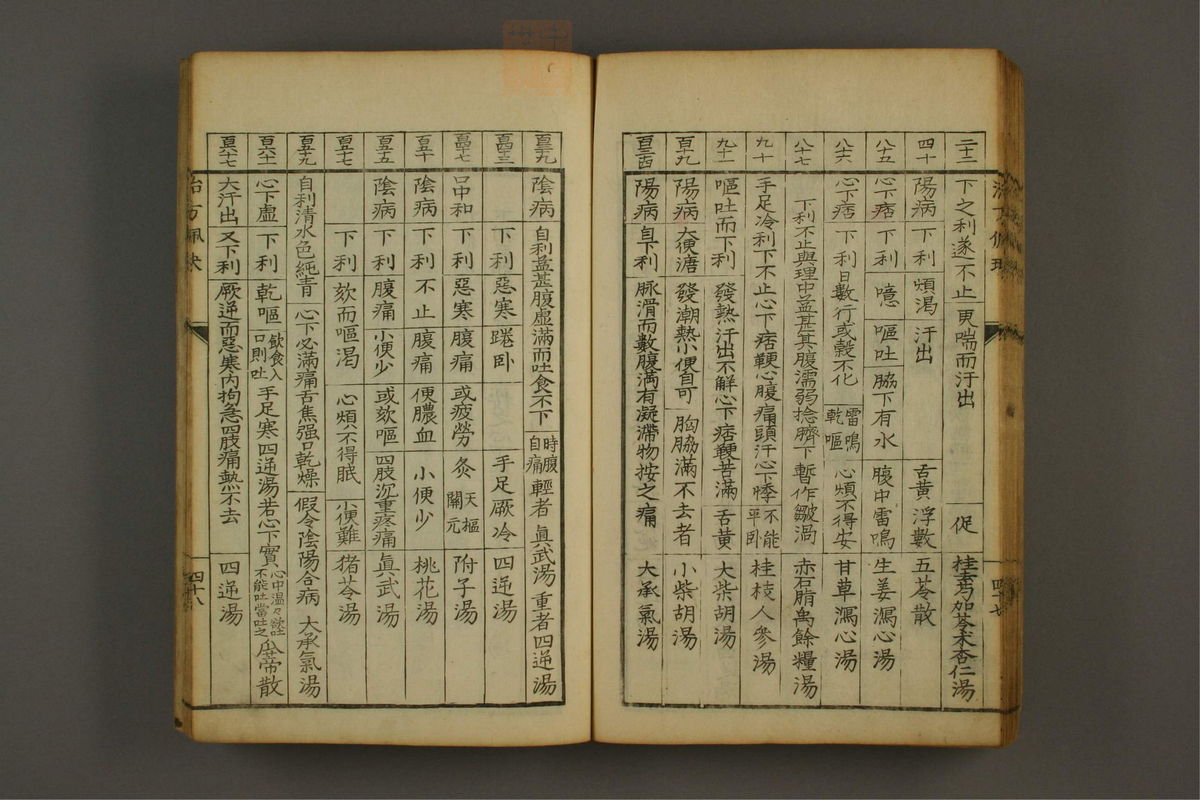 二十二 下之利遂不止 更喘而汗出 促 桂麦芍加苓朮杏仁湯
四十 陽病 下利 煩渴 汗出 舌黄 浮數 五苓散
八十五 心下痞 下利 噫 嘔吐 脇下有水 腹中雷鳴 生姜瀉心湯
八十六 心下痞 下利日數行或穀不化 雷鳴乾嘔 心煩不得安 甘草瀉心湯
八十七 下利不止與理中益甚其腹濡弱捻臍下暫作皺渦 赤石脂禹餘糧湯
九十 手足冷利下不止心下痞鞕心腹痛頭汗心下悸 不能平卧 桂枝人參湯
九十二 嘔吐而下利 發熱汗出不解心下痞鞕苦滿 舌黄 大柴胡湯
百十九 陽病 大便溏 發潮熱小便自可 胸脇滿不去者 小柴胡湯
百三十四 陽病 自下利 脉滑而數腹滿有凝滯物按之痛 大承氣湯
四十七
百三十九 陰病 自利益甚腹虛滿而吐食不下 時腹自痛 輕者 眞武湯 重者四逆湯
百四十三 下利 惡寒 踡卧 手足厥冷 四逆湯
百四十七 口中和 下利 惡寒 腹痛 或疲勞 灸 天樞關元 附子湯
百五十 陰病 下利 不止 腹痛 便膿血 小便少 桃花湯
百五十五 陰病 下利 腹痛 小便少 或欬嘔 四肢沉重疼痛 眞武湯
百五十七 下利 欬而嘔渴 心煩不得眠 小便難 猪苓湯
百五十九 自利清水色純青 心下必滿痛舌焦强口乾燥 假令陰陽合病 大承氣湯
百六十一 心下虛 下利 乾嘔 飲食入口則吐 手足寒四逆湯若心下實 心中温々欲吐不能吐當吐之 瓜蒂散
百六十七 大汗出 又下利 厥逆而惡寒内拘急四肢痛熱不去 四逆湯
四十八